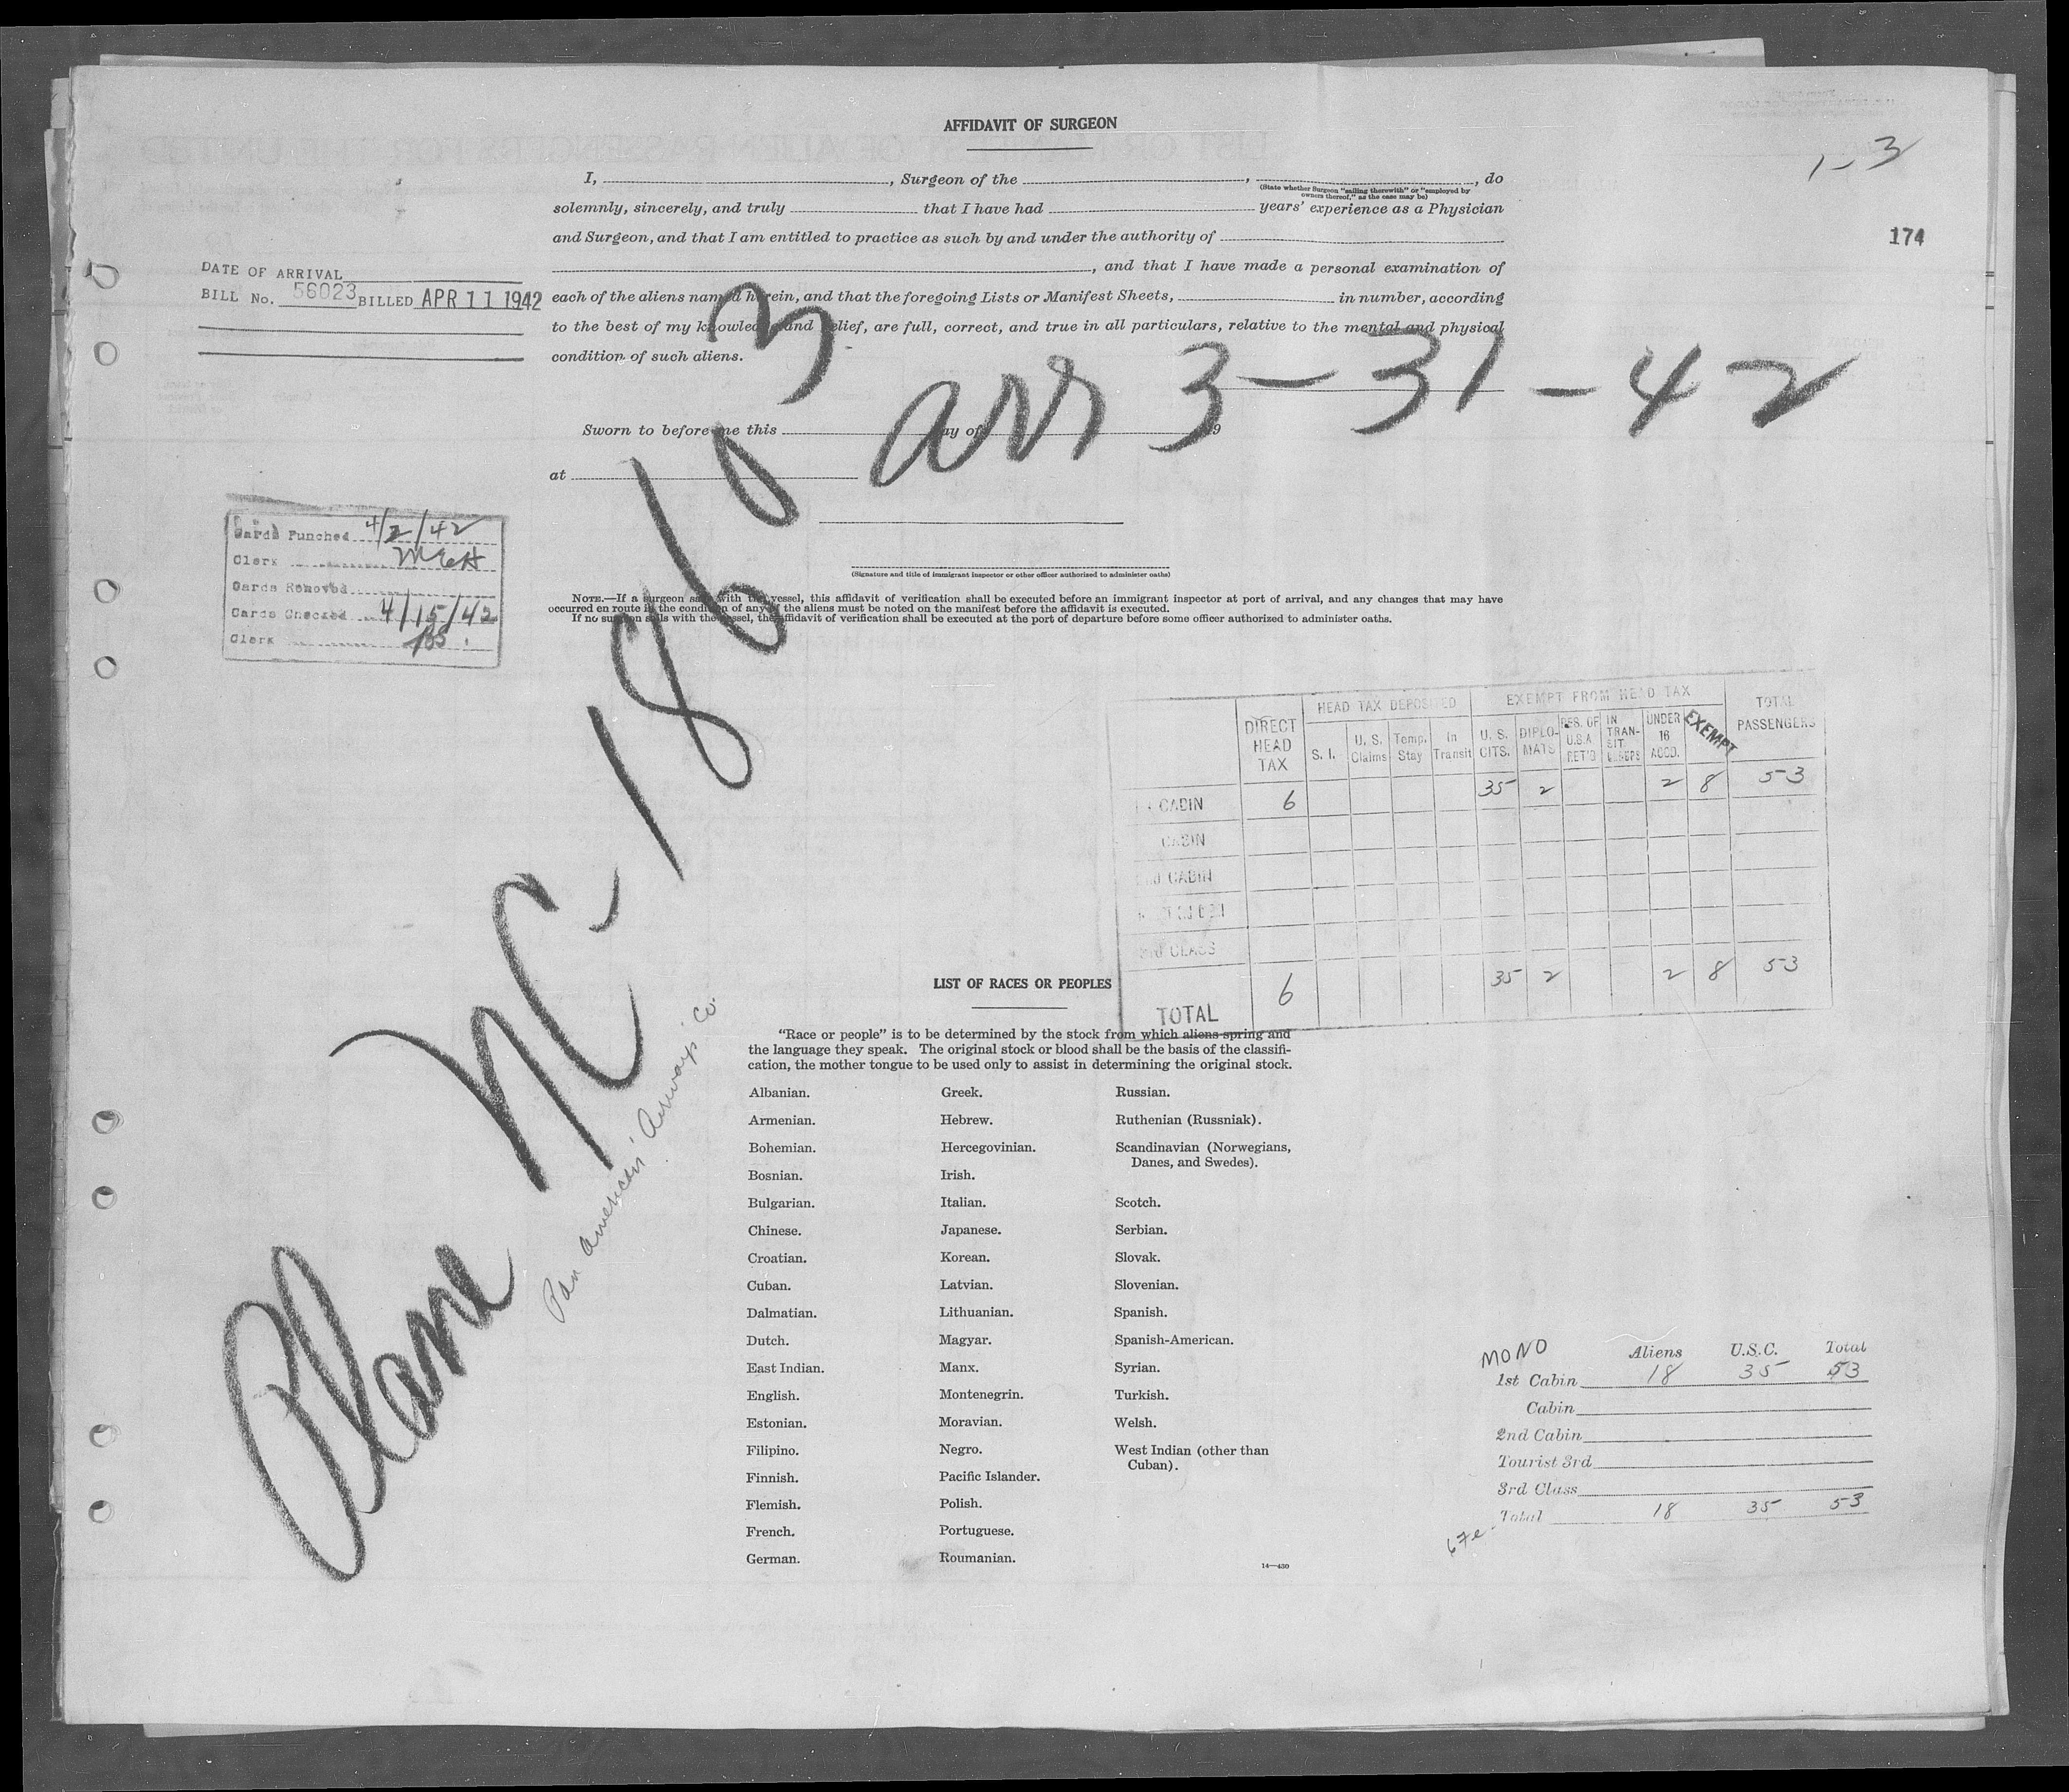 AFFIDAVIT OF SURGEON
1-3
174
I, , Surgeon of the , , do
(State whether Surgeon "sailing therewith" or "employed by
owners thereof," as the case may be)
solemnly, sincerely, and truly that I have had years' experience as a Physician
and Surgeon, and that I am entitled to practice as such by and under the authority of
, and that I have made a personal examination of
each of the aliens named herein, and that the foregoing Lists or Manifest Sheets, in number, according
to the best of my knowledge and belief, are full, correct, and true in all particulars, relative to the mental and physical
condition of such aliens.
DATE OF ARRIVAL
BILL No. 56023 BILLED APR 11 1942
arr 3-31-42
Sworn to before me this day of 19
at
(Signature and title of immigrant inspector or other officer authorized to administer oaths)
NOTE.—If a surgeon sails with the vessel, this affidavit of verification shall be executed before an immigrant inspector at port of arrival, and any changes that may have
occurred en route in the condition of any of the aliens must be noted on the manifest before the affidavit is executed.
If no surgeon sails with the vessel, the affidavit of verification shall be executed at the port of departure before some officer authorized to administer oaths.
Cards Punched 4/2/42
Clerk
Cards Removed
Cards Checked 4/15/42
Clerk
Plane NC-18603
Pan American Airways Co.
DIRECT HEAD TAX
HEAD TAX DEPOSITED
EXEMPT FROM HEAD TAX
TOTAL PASSENGERS
S. I.
U. S. Claims
Temp. Stay
In Transit
U. S. CITS.
DIPLO-MATS
RES. OF U.S.A. RET'D
IN TRAN-SIT
UNDER 16 ACCD.
EXEMPT
CABIN 6 35 2 2 8 53
CABIN
CABIN
CLASS
TOTAL 6 35 2 2 8 53
LIST OF RACES OR PEOPLES
"Race or people" is to be determined by the stock from which aliens spring and
the language they speak. The original stock or blood shall be the basis of the classifi-
cation, the mother tongue to be used only to assist in determining the original stock.
Albanian.
Armenian.
Bohemian.
Bosnian.
Bulgarian.
Chinese.
Croatian.
Cuban.
Dalmatian.
Dutch.
East Indian.
English.
Estonian.
Filipino.
Finnish.
Flemish.
French.
German.
Greek.
Hebrew.
Hercegovinian.
Irish.
Italian.
Japanese.
Korean.
Latvian.
Lithuanian.
Magyar.
Manx.
Montenegrin.
Moravian.
Negro.
Pacific Islander.
Polish.
Portuguese.
Roumanian.
Russian.
Ruthenian (Russniak).
Scandinavian (Norwegians,
Danes, and Swedes).
Scotch.
Serbian.
Slovak.
Slovenian.
Spanish.
Spanish-American.
Syrian.
Turkish.
Welsh.
West Indian (other than
Cuban).
14—430
MONO Aliens U.S.C. Total
1st Cabin 18 35 53
Cabin
2nd Cabin
Tourist 3rd
3rd Class
Total 18 35 53